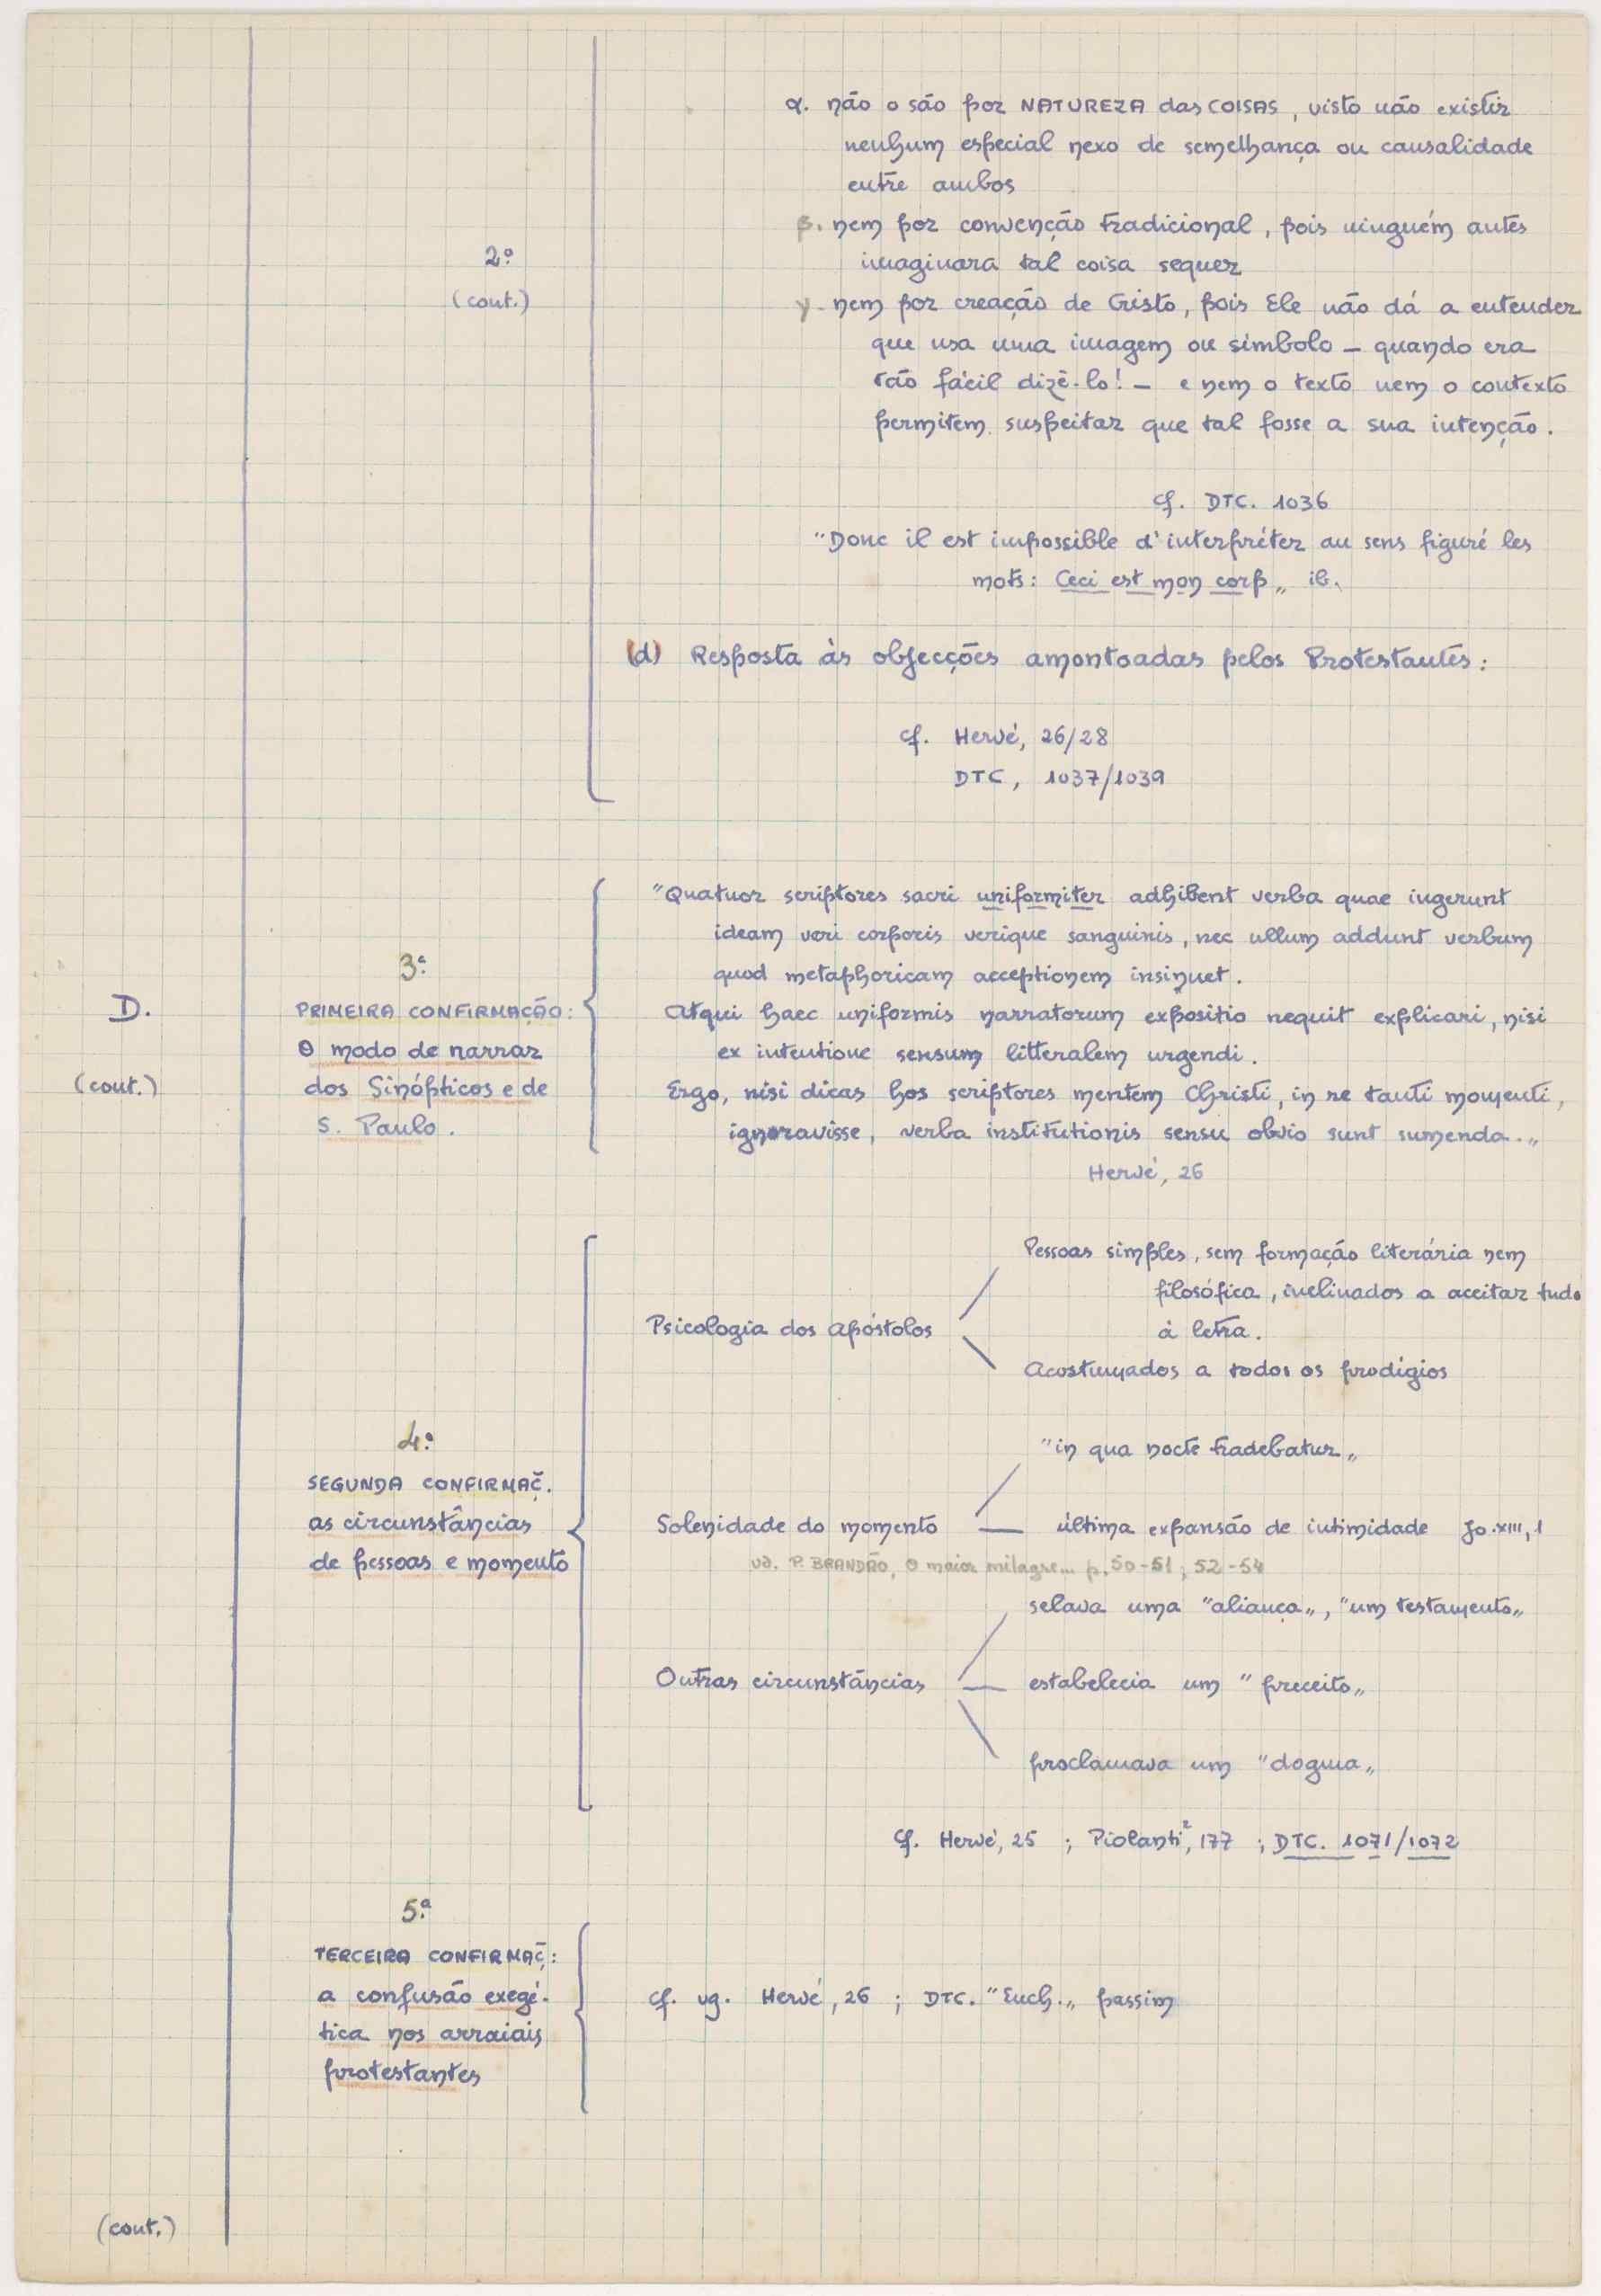 α. não o são por NATUREZA das COISAS, visto não existir
nenhum especial nexo de semelhança ou causalidade
entre ambos
β. nem por convenção tradicional, pois ninguém antes
imaginara tal coisa sequer
γ. nem por creação de Cristo, pois Ele não dá a entender
que usa uma imagem ou símbolo — quando era
tão fácil dizê-lo! — e nem o texto nem o contexto
permitem suspeitar que tal fosse a sua intenção.
2º
(cont.)
cf. DTC. 1036
"Donc il est impossible d'interpréter au sens figuré les
mots: Ceci est mon corp„ ib.
(d) Resposta às objecções amontoadas pelos Protestantes:
cf. Hervé, 26/28
DTC, 1037/1039
D.
(cont.)
3ª
PRIMEIRA CONFIRMAÇÃO:
O modo de narrar
dos Sinópticos e de
S. Paulo.
"Quatuor scriptores sacri uniformiter adhibent verba quae ingerunt
ideam veri corporis verique sanguinis, nec ullum addunt verbum
quod metaphoricam acceptionem insinuet.
Atqui haec uniformis narratorum expositio nequit explicari, nisi
ex intentione sensum litteralem urgendi.
Ergo, nisi dicas hos scriptores mentem Christi, in re tanti momenti,
ignoravisse, verba institutionis sensu obvio sunt sumenda.„
Hervé, 26
4ª
SEGUNDA CONFIRMAÇ̃.
as circunstâncias
de pessoas e momento
Psicologia dos Apóstolos
Pessoas simples, sem formação literária nem
filosófica, inclinados a aceitar tudo
à letra.
Acostumados a todos os prodígios
Solenidade do momento
"in qua nocte tradebatur„
última expansão de intimidade Jo.XIII, 1
vd. P. BRANDÃO, O maior milagre... p. 50-51; 52-54
Outras circunstâncias
selava uma "aliança„, "um testamento„
estabelecia um "preceito„
proclamava um "dogma„
Cf. Hervé, 25 ; Piolanti², 177 ; DTC. 1071/1072
5ª
TERCEIRA CONFIRMAÇ̃:
a confusão exegé-
tica nos arraiais
protestantes
cf. vg. Hervé, 26 ; DTC. "Euch.„ passim
(cont.)